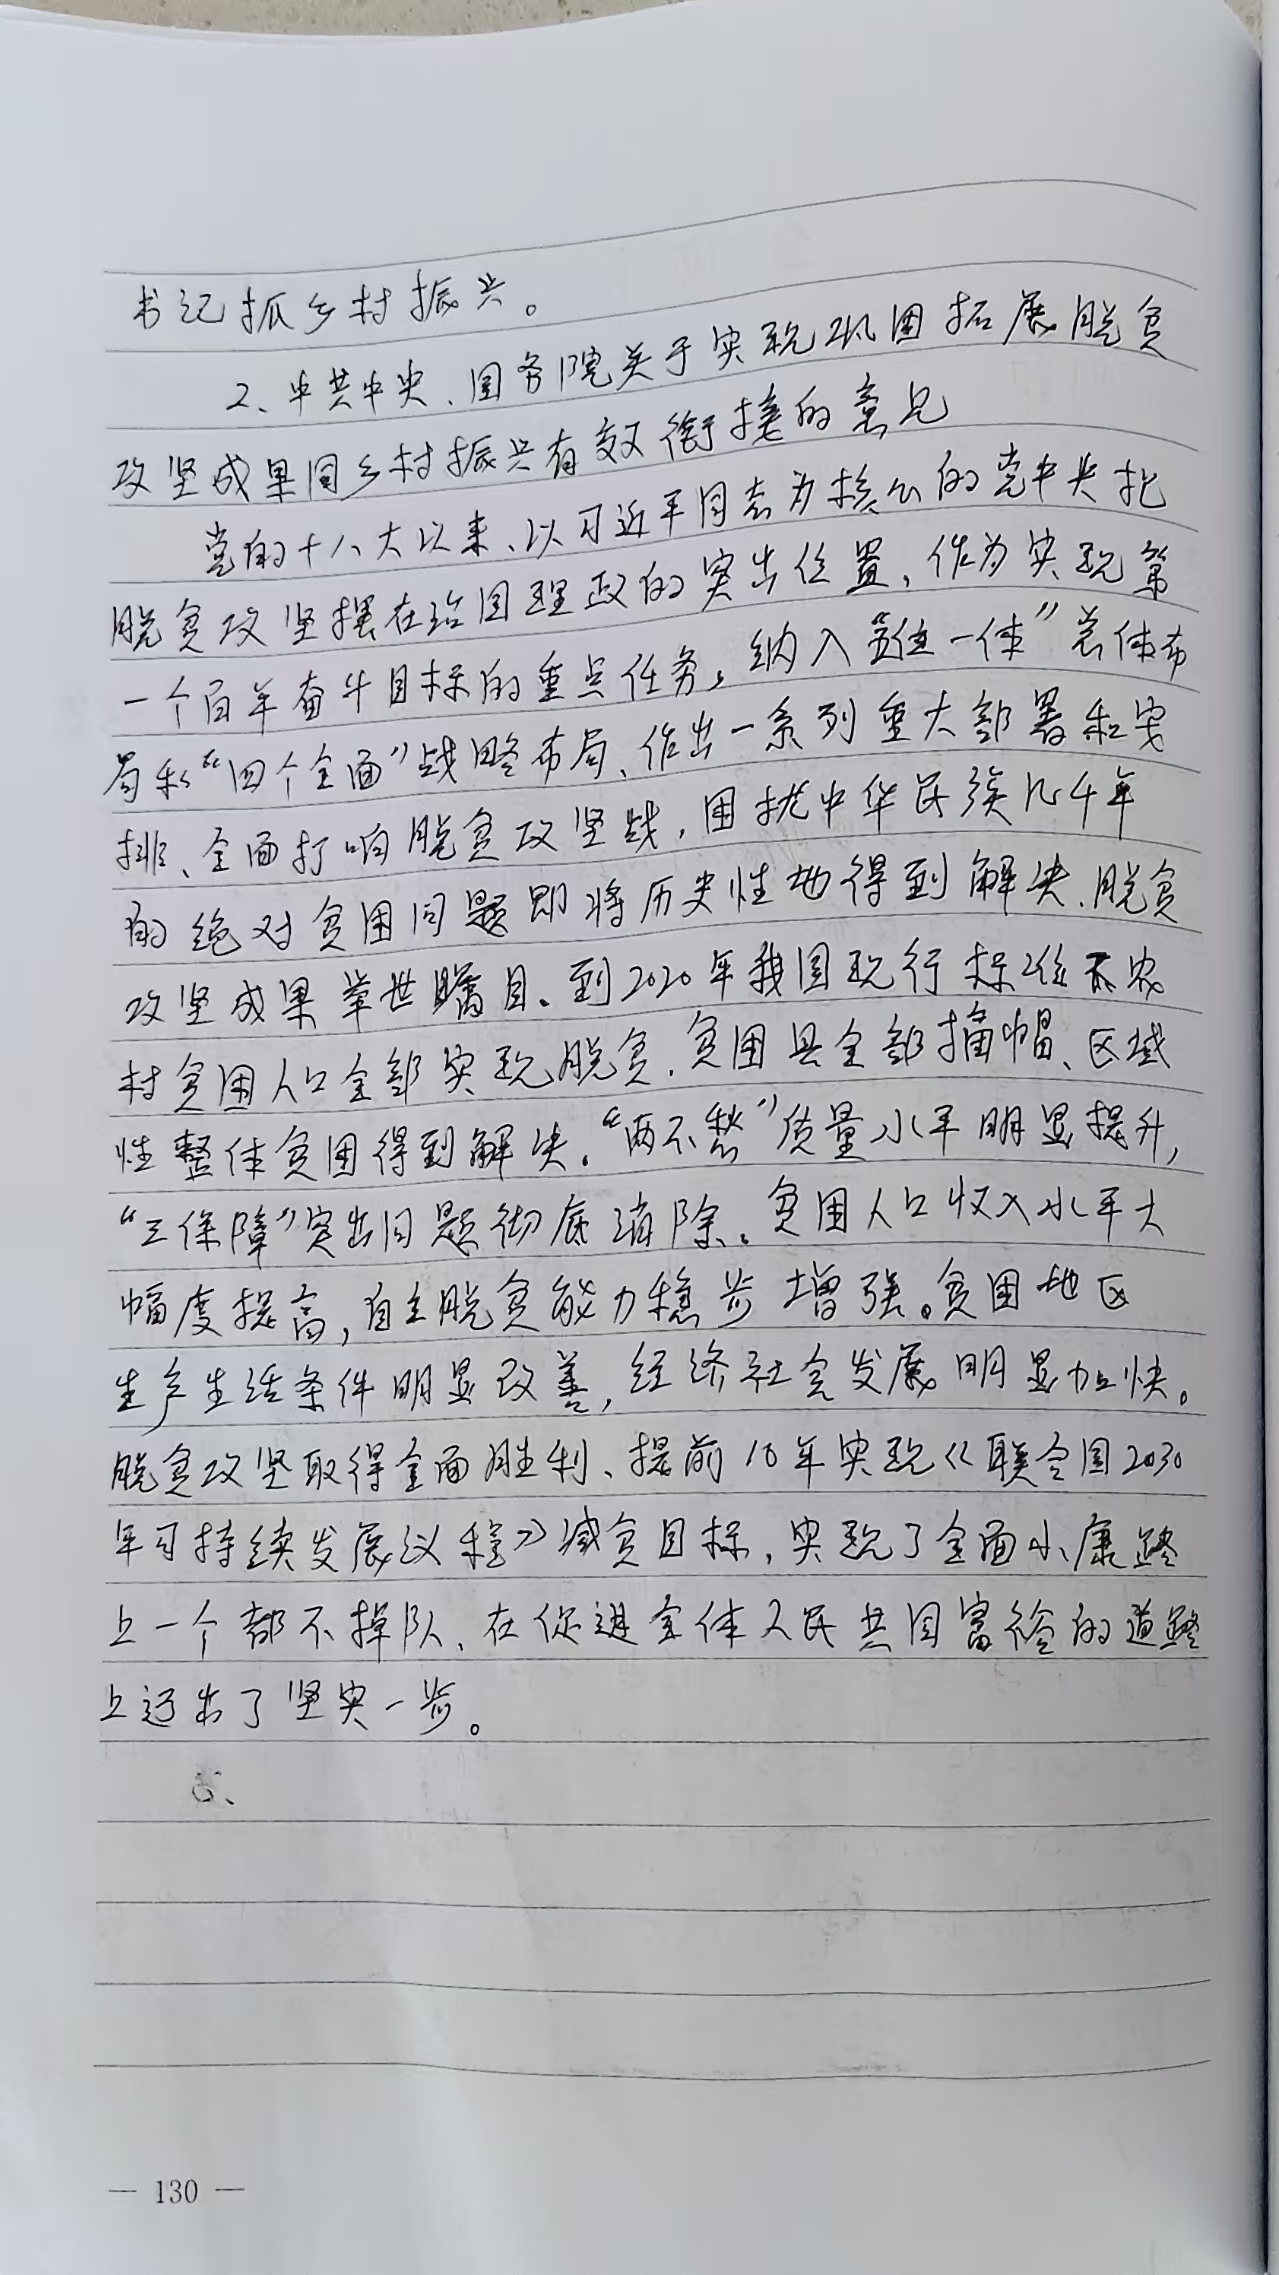 书记抓乡村振兴。
2、中共中央、国务院关于实现巩固拓展脱贫
攻坚成果同乡村振兴有效衔接的意见
党的十八大以来、以习近平同志为核心的党中央把
脱贫攻坚摆在治国理政的突出位置、作为实现第
一个百年奋斗目标的重点任务，纳入“五位一体”总体布
局和“四个全面”战略布局、作出一系列重大部署和安
排、全面打响脱贫攻坚战，困扰中华民族几千年
的绝对贫困问题即将历史性地得到解决、脱贫
攻坚成果举世瞩目、到2020年我国现行标准下农
村贫困人口全部实现脱贫、贫困县全部摘帽、区域
性整体贫困得到解决。“两不愁”质量水平明显提升，
“三保障”突出问题彻底消除。贫困人口收入水平大
幅度提高，自主脱贫能力稳步增强。贫困地区
生产生活条件明显改善，经济社会发展明显加快。
脱贫攻坚取得全面胜利、提前10年实现《联合国2030
年可持续发展议程》减贫目标，实现了全面小康路
上一个都不掉队、在促进全体人民共同富裕的道路
上迈出了坚实一步。
— 130 —